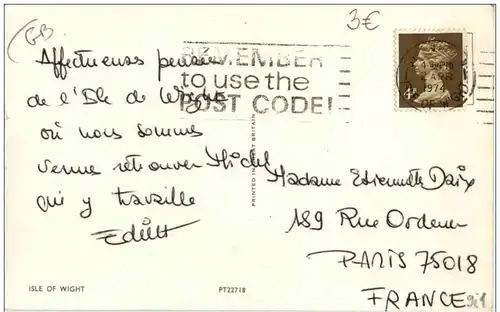 GB
3€
REMEMBER
to use the
POST CODE!
1974
Affectueuses pensées
de l'Ile de Wight
où nous sommes
venus retrouver Michel
qui y travaille
Edith
PRINTED IN GREAT BRITAIN
Madame
189 Rue Ordener
PARIS 75018
FRANCE
ISLE OF WIGHT
PT22718